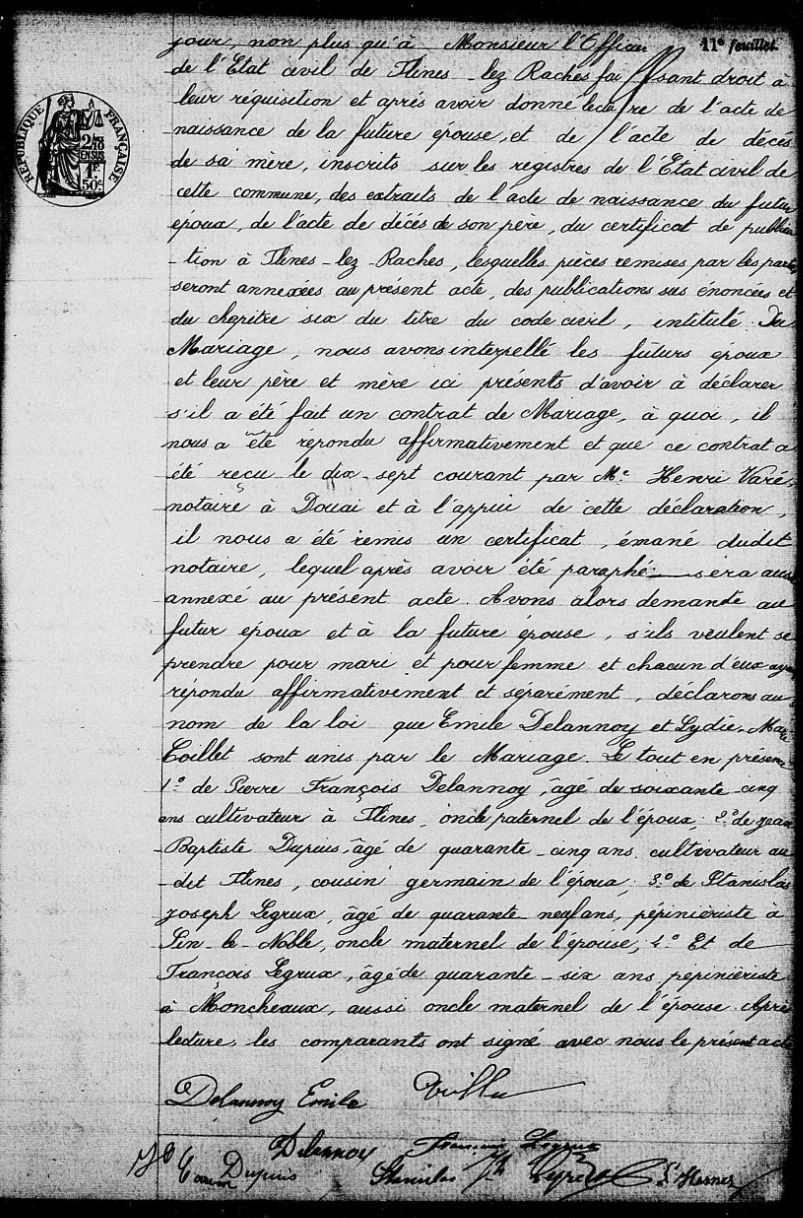 11e feuillet.
jour, non plus qu'à Monsieur l'Officier
de l'Etat civil de Flines-lez Raches faisant droit à
leur réquisition et après avoir donné lecture de l'acte de
naissance de la future épouse, et de l'acte de décès
de sa mère, inscrits sur les registres de l'Etat civil de
cette commune, des extraits de l'acte de naissance du futur
époux, de l'acte de décès de son père, du certificat de publica
-tion à Flines-lez-Raches, lesquelles pièces remises par les parties
seront annexées au présent acte, des publications sus énoncées et
du chapitre six du titre du code civil, intitulé Du
Mariage, nous avons interpellé les futurs époux
et leur père et mère ici présents d'avoir à déclarer
s'il a été fait un contrat de Mariage, à quoi, il
nous a été répondu affirmativement et que ce contrat a
été reçu le dix-sept courant par Me Henri Varé,
notaire à Douai et à l'appui de cette déclaration,
il nous a été remis un certificat, émané dudit
notaire, lequel après avoir été paraphé sera aussi
annexé au présent acte. Avons alors demandé au
futur époux et à la future épouse, s'ils veulent se
prendre pour mari et pour femme et chacun d'eux ayant
répondu affirmativement et séparément, déclarons au
nom de la loi que Emile Delannoy et Lydie Marie
Coillet sont unis par le Mariage. Le tout en présence
1.o de Pierre François Delannoy, âgé de soixante-cinq
ans cultivateur à Flines, oncle paternel de l'époux; 2.o de Jean
Baptiste Dupuis, âgé de quarante-cinq ans cultivateur au
-dit Flines, cousin germain de l'époux; 3.o de Stanislas
Joseph Legrux, âgé de quarante-neuf ans, pépinièriste à
Sin-le-Noble, oncle maternel de l'épouse; 4.o Et de
François Legrux, âgé de quarante-six ans, pépinièriste
à Moncheaux, aussi oncle maternel de l'épouse. Après
lecture, les comparants ont signé avec nous le présent acte
Delannoy Emile
Delannoy François Legrux
Dupuis Stanislas
RÉPUBLIQUE FRANÇAISE
2/10 EN SUS
1F 50c